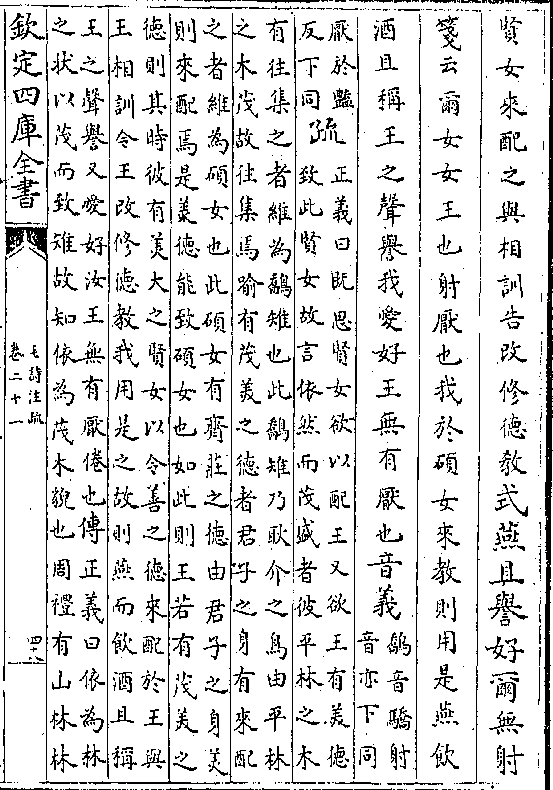 賢女來配之與相訓告改修德教式燕且譽好爾無射
箋云爾女女王也射厭也我於碩女來教則用是燕飲
酒且稱王之聲譽我愛好王無有厭也音義鷮音驕射
音亦下同
厭於豔
反下同疏正義曰既思賢女欲以配王又欲王有美德
致此賢女故言依然而茂盛者彼平林之木
有往集之者維為鷮雉也此鷮雉乃耿介之鳥由平林
之木茂故往集焉喻有茂美之德者君子之身有來配
之者維為碩女也此碩女有齊莊之德由君子之身美
則來配焉是美德能致碩女也如此則王若有茂美之
德則其時彼有美大之賢女以令善之德來配於王與
王相訓令王改修德教我用是之故則燕而飲酒且稱
王之聲譽又愛好汝王無有厭倦也傳正義曰依為林
之狀以茂而致雉故知依為茂木貌也周禮有山林林
欽定四庫全書
毛詩注疏
卷二十一
四十八